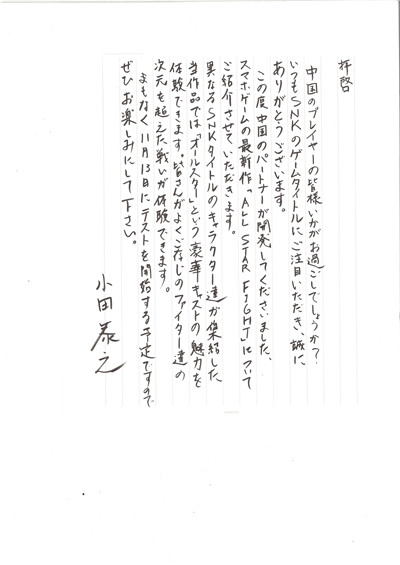 拝啓
中国のプレイヤーの皆様いかがお過ごしでしょうか？
いつもSNKのゲームタイトルにご注目いただき、誠に
ありがとうございます。
この度中国のパートナーが開発してくださいました、
スマホゲームの最新作「ALL STAR FIGHT」について
ご紹介させていただきます。
異なるSNKタイトルのキャラクター達が集結した
当作品では「オールスター」という豪華キャストの魅力を
体験できます。皆さんがよくご存じのファイター達の
次元を超えた戦いが体験できます。
まもなく11月13日にテストを開始する予定ですので
ぜひお楽しみにして下さい。
小田泰之